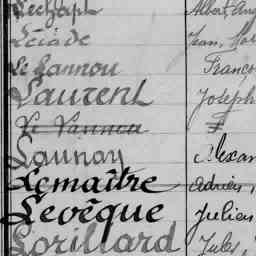 Lechapt Albert
Lciade Jean,
Le Lannou Franço
Laurent Joseph
Le Vannou
Launay Alexan
Lemaître Adrien,
Levêque Julien
Lorillard Jules,